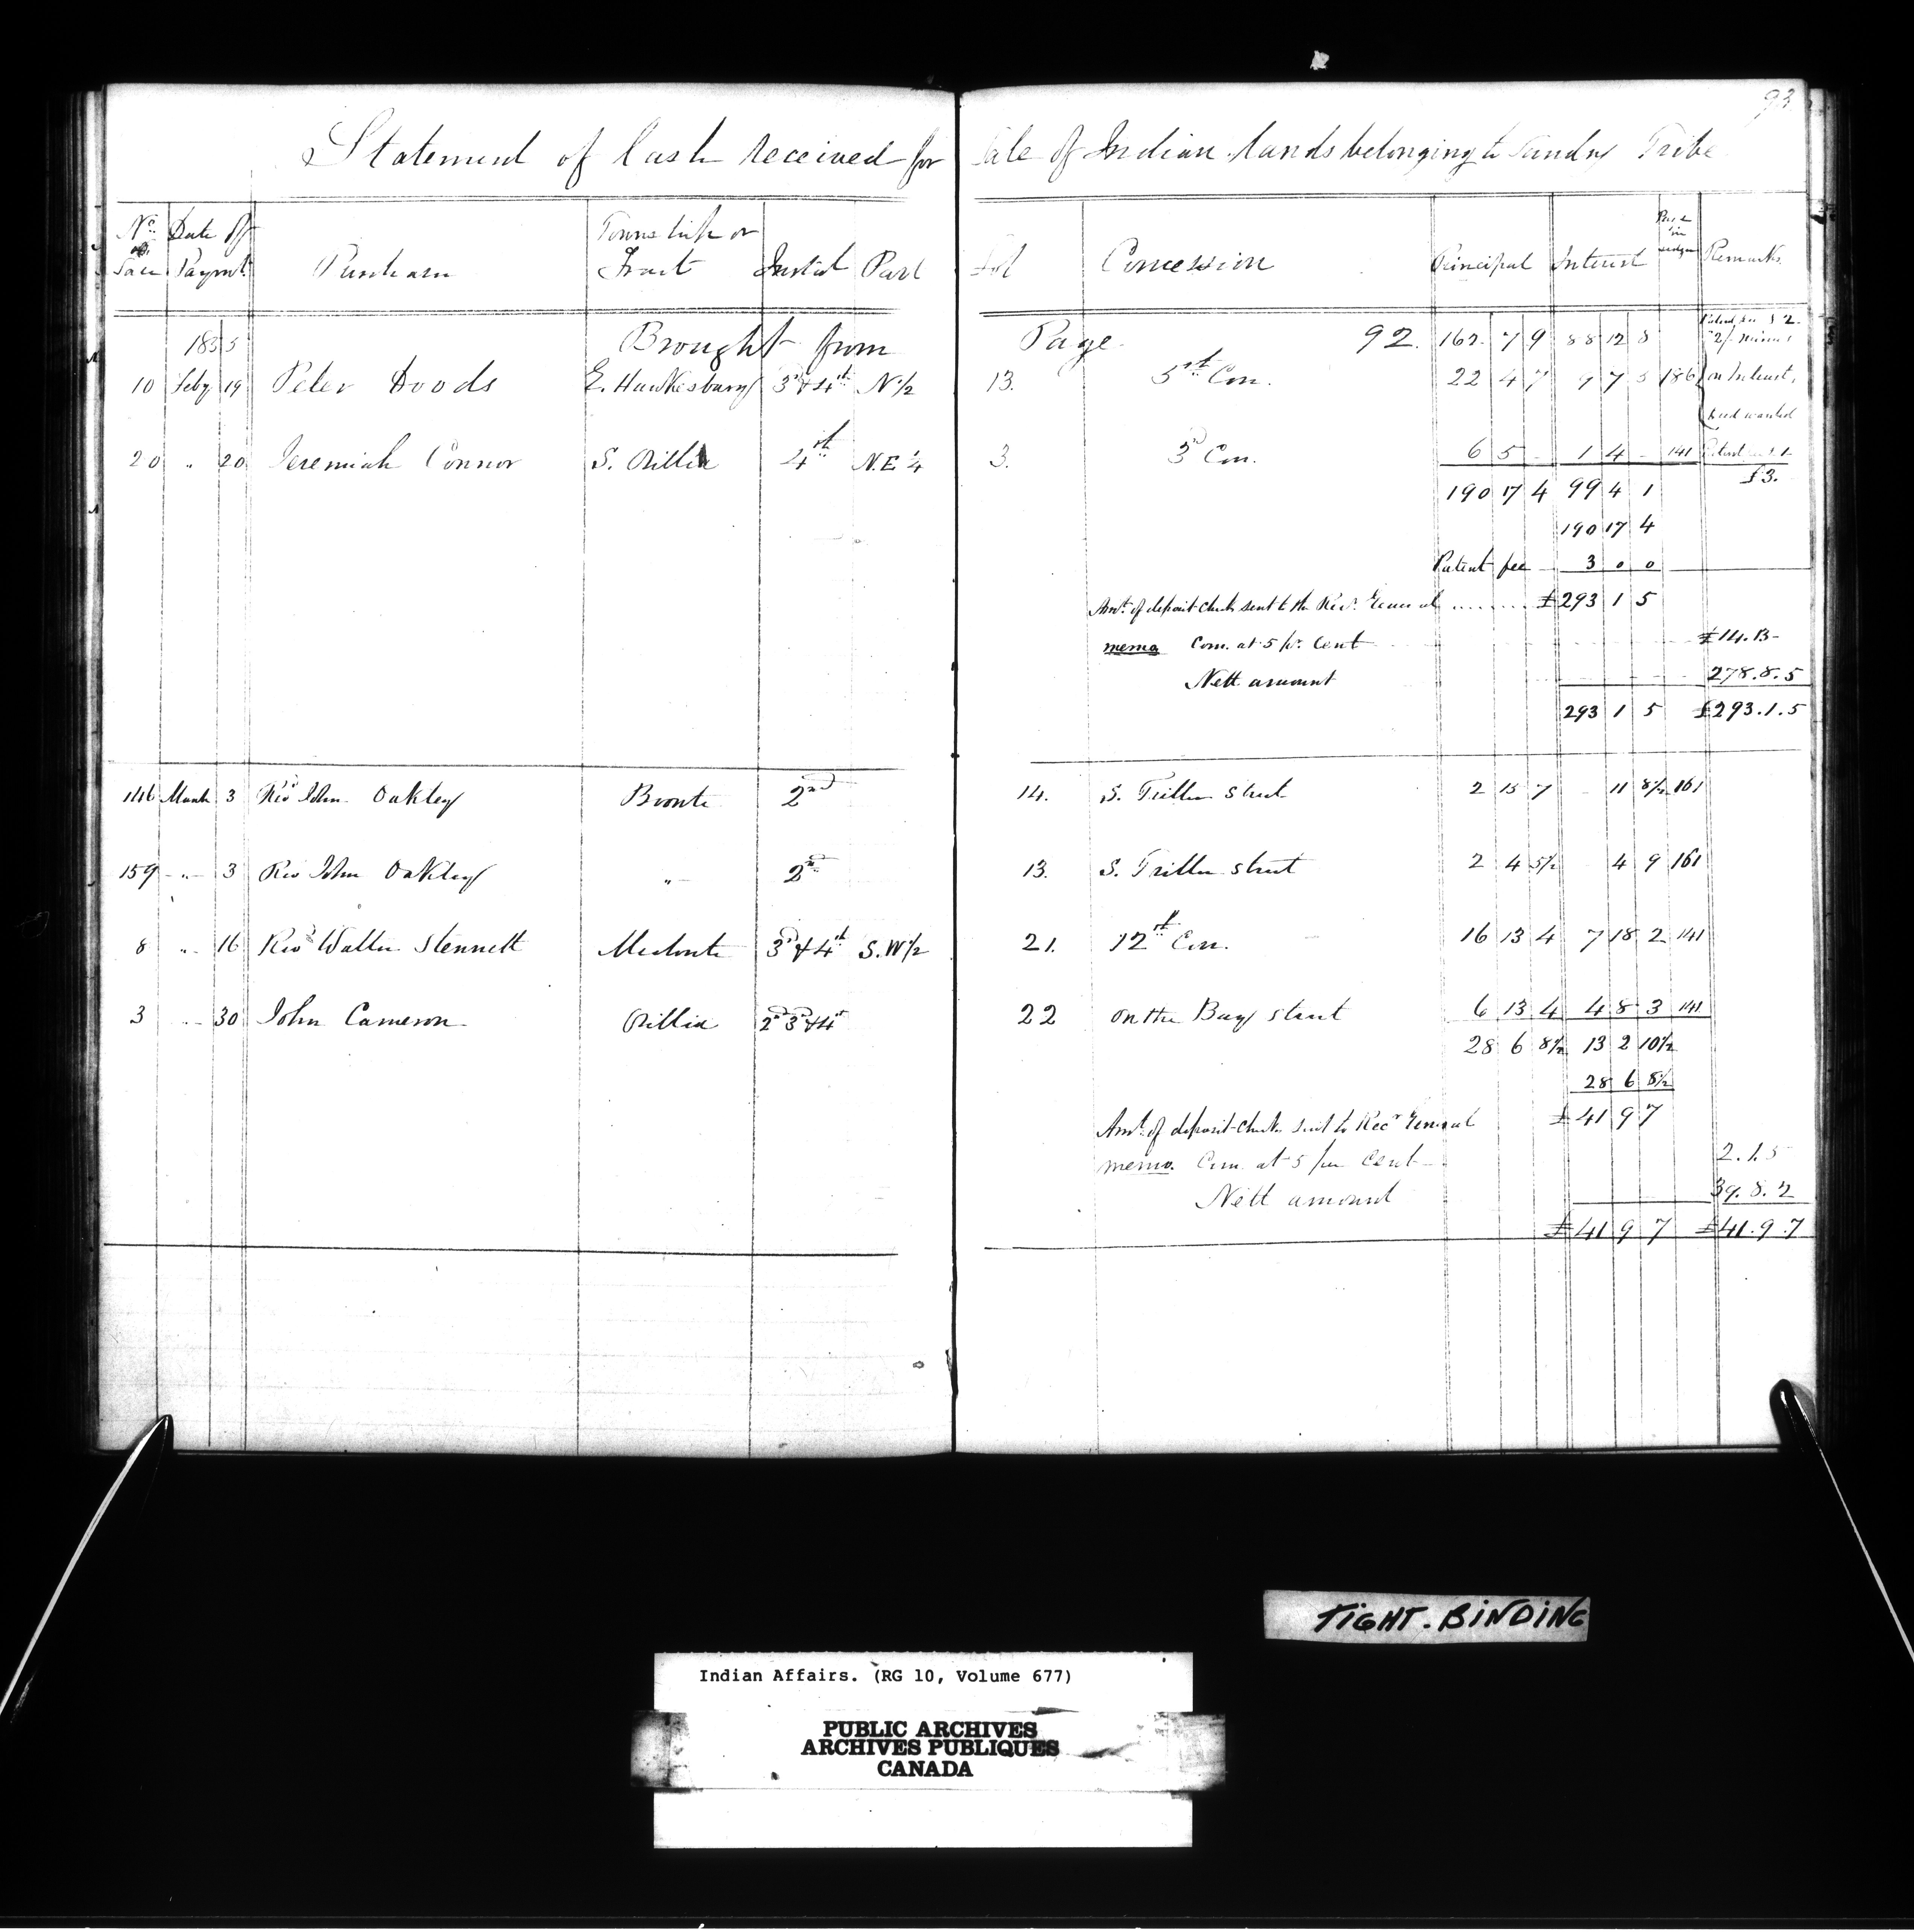 93
Statement of Cash received for Sale of Indian lands belonging to Sundry Tribe
No. of Sale Date of Paymt. Purchaser Township or Tract Instal Part Lot Concession Principal Interest Page in Ledger Remarks
1855 Brought from Page 92. 162 7 9 88 12 8
10 Feby 19 Peter Doods E. Hawkesbury 3d & 4th N 1/2 13. 5th Con. 22 4 7 9 7 5 186 on Interest,
Deed wanted
20 " 20 Jeremiah Connor S. Orillia 4th N.E 1/4 3. 3d Con. 6 5 - 1 4 - 141
£3.
190 17 4 99 4 1
190 17 4
Patent fee 3 0 0
Amt. of deposit checks sent to the Recr. General ........ £293 1 5
memo Com. at 5 pr. Cent £14.13-
Nett amount 278.8.5
293 1 5 £293.1.5
146 March 3 Revd John Oakley Bronte 2nd 14. S. Triller street 2 15 7 - 11 8 1/2 161
159 " 3 Rev John Oakley " 2nd 13. S. Triller street 2 4 5 1/2 - 4 9 161
8 " 16 Revd Walter Stennett Medonte 3d & 4th S.W 1/2 21. 12th Con. 16 13 4 7 18 2 141
3 " 30 John Cameron Orillia 2d 3d & 4th 22 on the Bay street 6 13 4 4 8 3 141
28 6 8 1/2 13 2 10 1/2
28 6 8 1/2
Amt. of deposit checks sent to Recr General £41 9 7
memo. Com. at 5 per Cent 2.1.5
Nett amount 39.8.2
£41 9 7 £41.9.7
TIGHT-BINDING
Indian Affairs. (RG 10, Volume 677)
PUBLIC ARCHIVES
ARCHIVES PUBLIQUES
CANADA